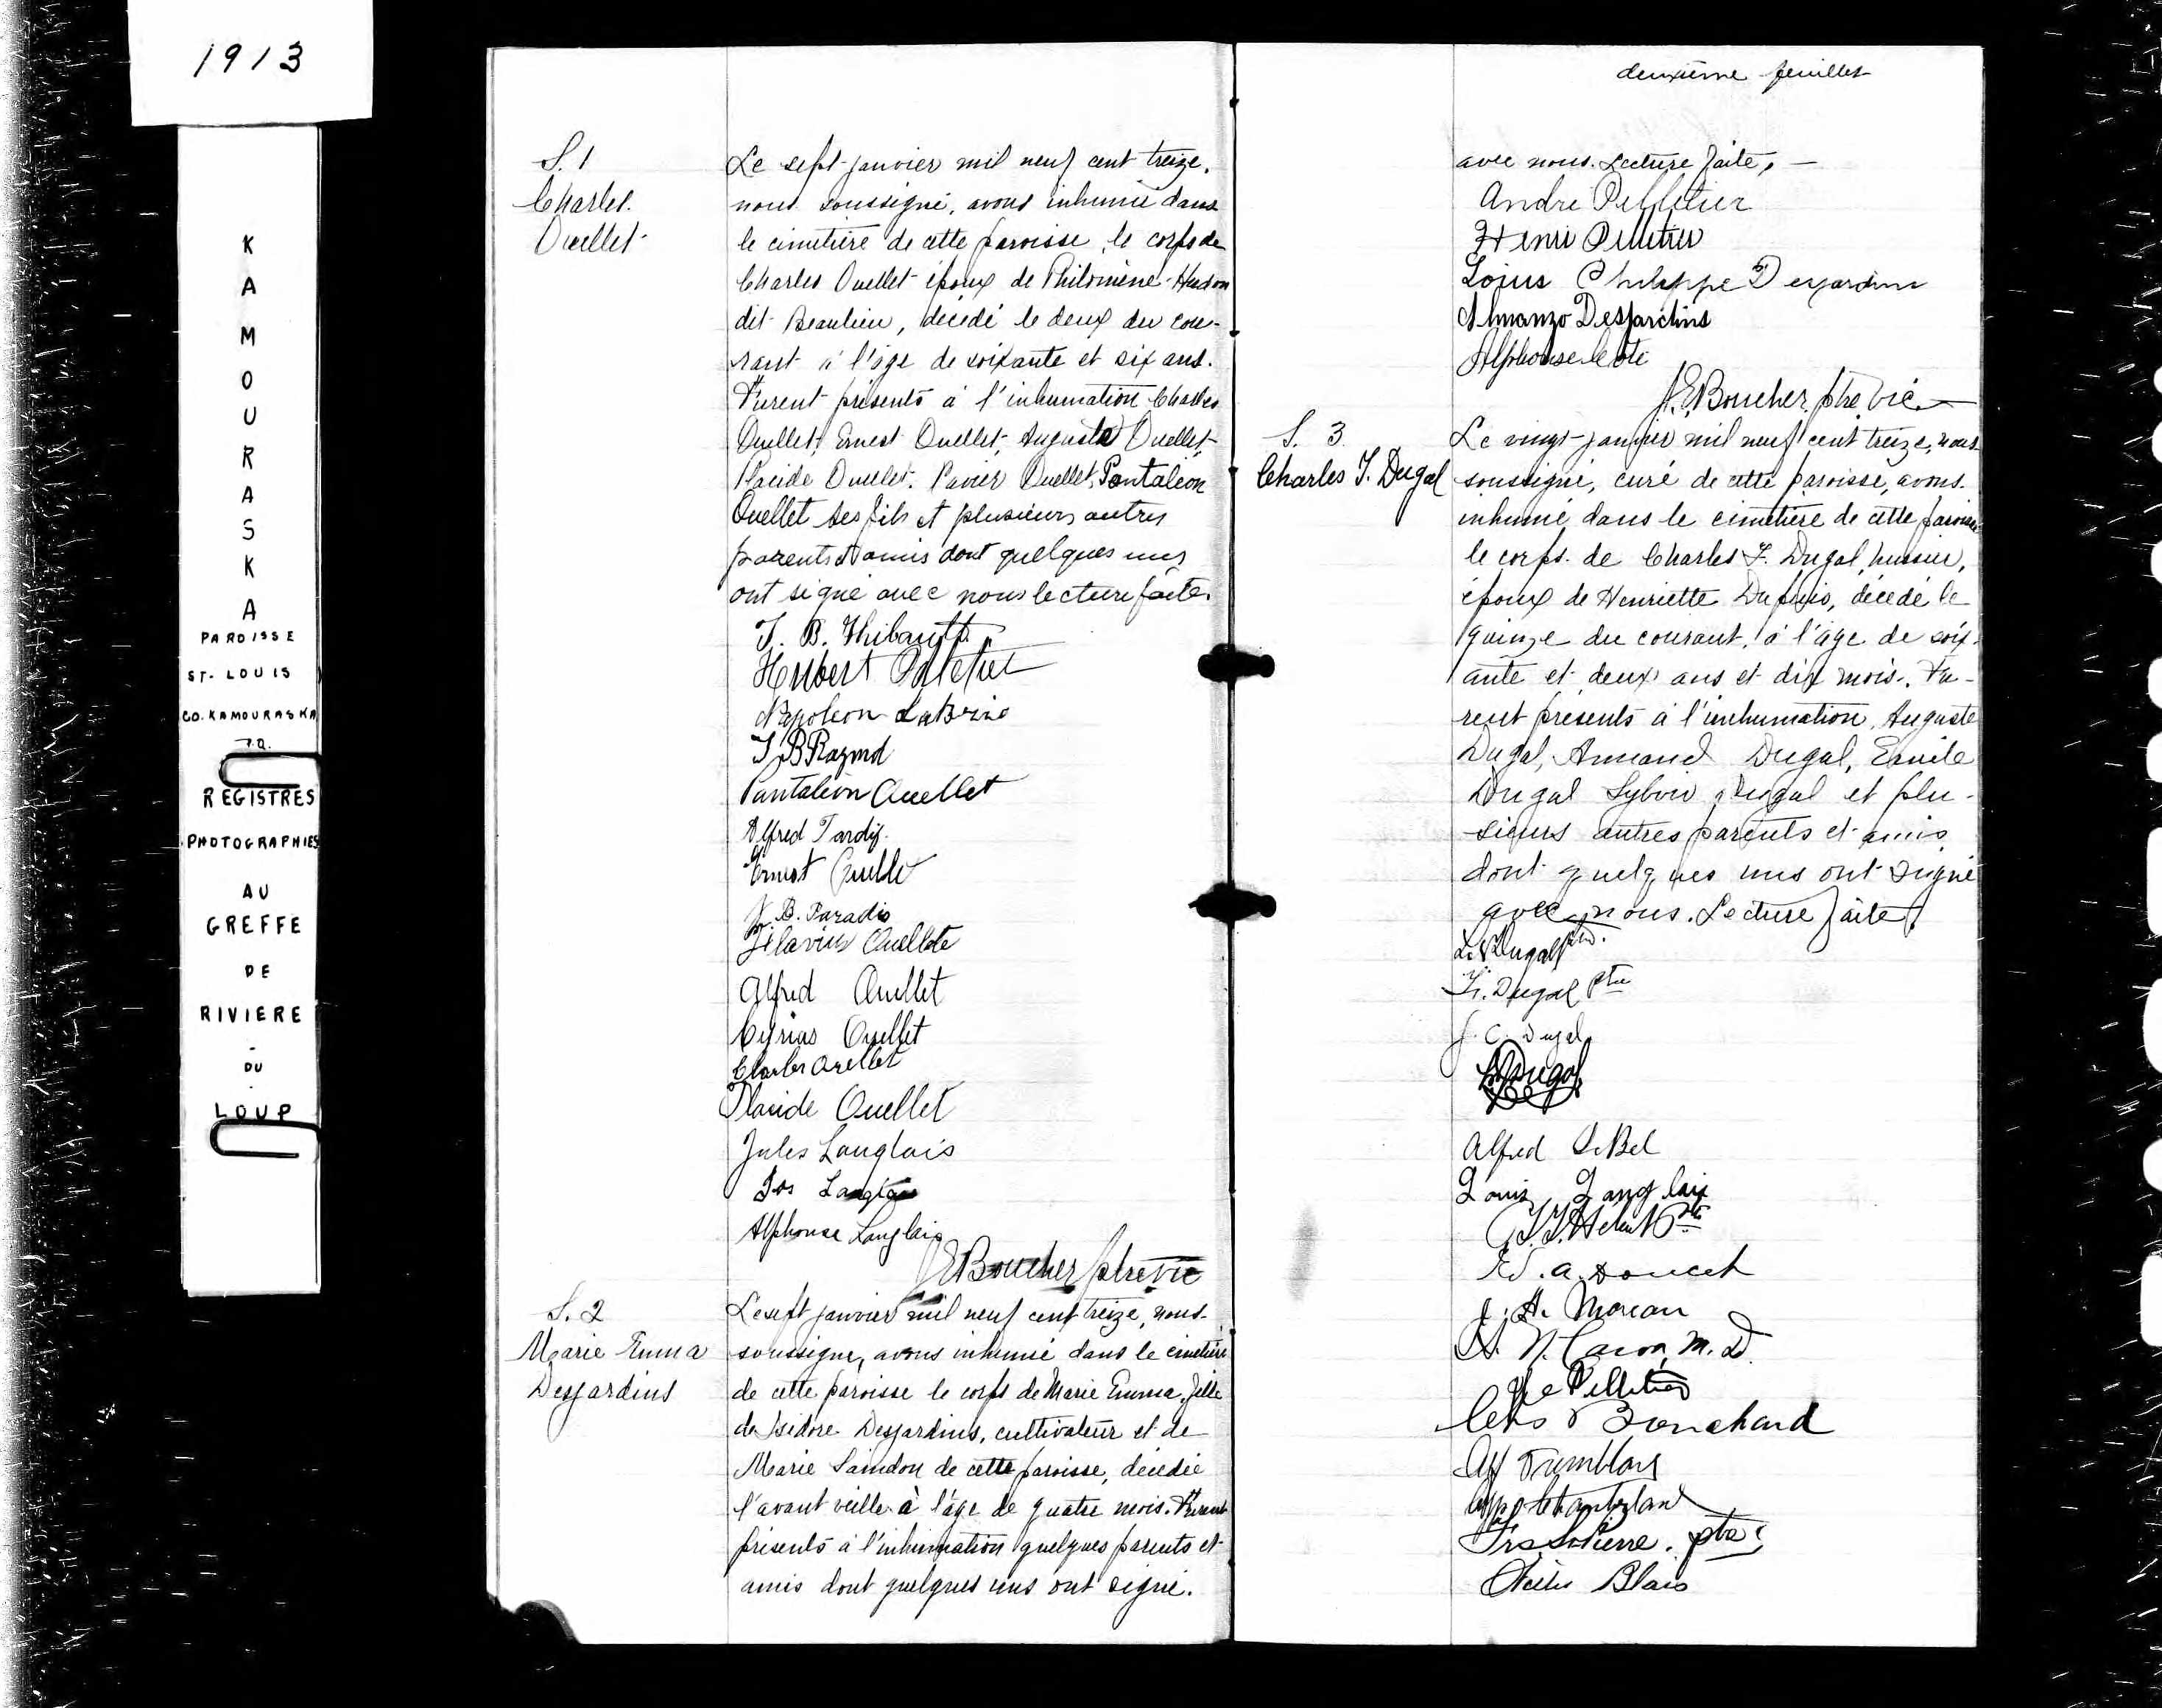 1913
KAMOURASKA
PAROISSE
ST-LOUIS
CO. KAMOURASKA
P.Q.
REGISTRES
PHOTOGRAPHIES
AU
GREFFE
DE
RIVIERE
-
DU
-
LOUP
S. 1
Charles
Ouellet
Le sept janvier mil neuf cent treize,
nous soussigné, avons inhumé dans
le cimetière de cette paroisse, le corps de
Charles Ouellet époux de Philomène Hudon
dit Beaulieu, décédé le deux du cou-
rant à l'âge de soixante et six ans.
Furent présents à l'inhumation Charles
Ouellet, Ernest Ouellet, Auguste Ouellet,
Placide Ouellet, Ouellet, Pantaléon
Ouellet ses fils et plusieurs autres
parents et amis dont quelques uns
ont signé avec nous lecture faite.
J. B. Thibault
Hubert Pelletier
Napoleon LaBrie
J. B Raymd
Pantaléon Ouellet
Alfred Tardif
Ernest Ouellet
J. B. Paradis
Flavius Ouellete
Alfred Ouellet
Cyrias Ouellet
Charles Ouellet
Placide Ouellet
Jules Langlais
Jos Langlais
Alphonse Langlais
JEBoucher ptre vic
S. 2
Marie Emma
Desjardins
Le sept janvier mil neuf cent treize, nous
soussigné, avons inhumé dans le cimetière
de cette paroisse le corps de Marie Emma, fille
de Isidore Desjardins, cultivateur et de
Marie Saindon de cette paroisse, décédée
l'avant veille à l'âge de quatre mois. Furent
présents à l'inhumation quelques parents et
amis dont quelques uns ont signé.
deuxième feuillet
avec nous. Lecture faite, —
André Pelletier
Henri Pelletier
Loius Philippe Desjardins
Almanzo Desjardins
Alphonse Coté
J. E. Boucher, ptre vic.
S. 3
Charles F. Dugal
Le vingt janvier mil neuf cent treize, nous
soussigné, curé de cette paroisse, avons
inhumé dans le cimetière de cette paroisse
le corps de Charles F. Dugal, huissier,
époux de Henriette Dupuis, décédé le
quinze du courant, à l'âge de soix-
ante et deux ans et dix mois. Fu-
rent présents à l'inhumation, Auguste
Dugal, Armand Dugal, Emile
Dugal Sylvio Dugal et plu-
sieurs autres parents et amis
dont quelques uns ont signé
avec nous. Lecture faite.
Dugal ptre.
Fr. Dugal ptre
J. C. Dugal
Dugal
Alfred LeBel
Louis Langlais
Ptre
A. Doucet
J. A. Moreau
N. Caron, M. D.
Pelletier
Chs Bouchard
Alf Tremblay
Frs St Pierre. ptre
Blais